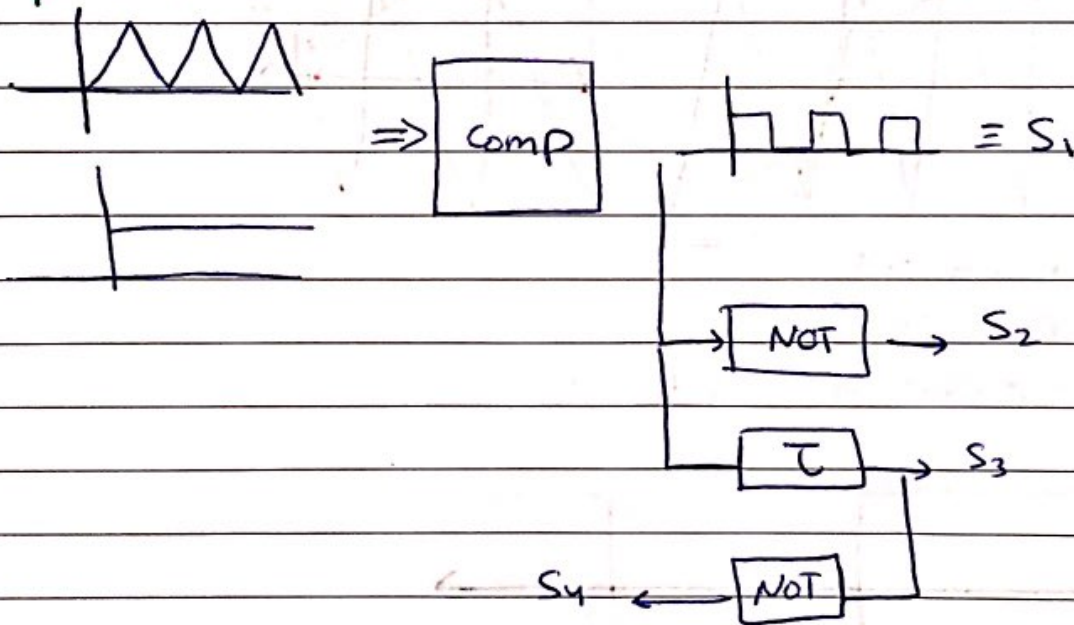 ⇒ Comp ≡ S1
NOT → S2
τ → S3
S4 ← NOT